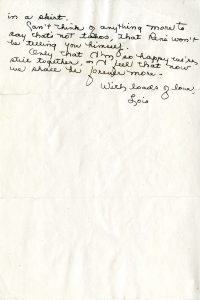 in a skirt.
Can't think of anything more to
say that's not taboo, that René won't
be telling you himself.
Only that I'm so happy we're
still together, and feel that now
we share he forever more.
With loads of love,
Lois